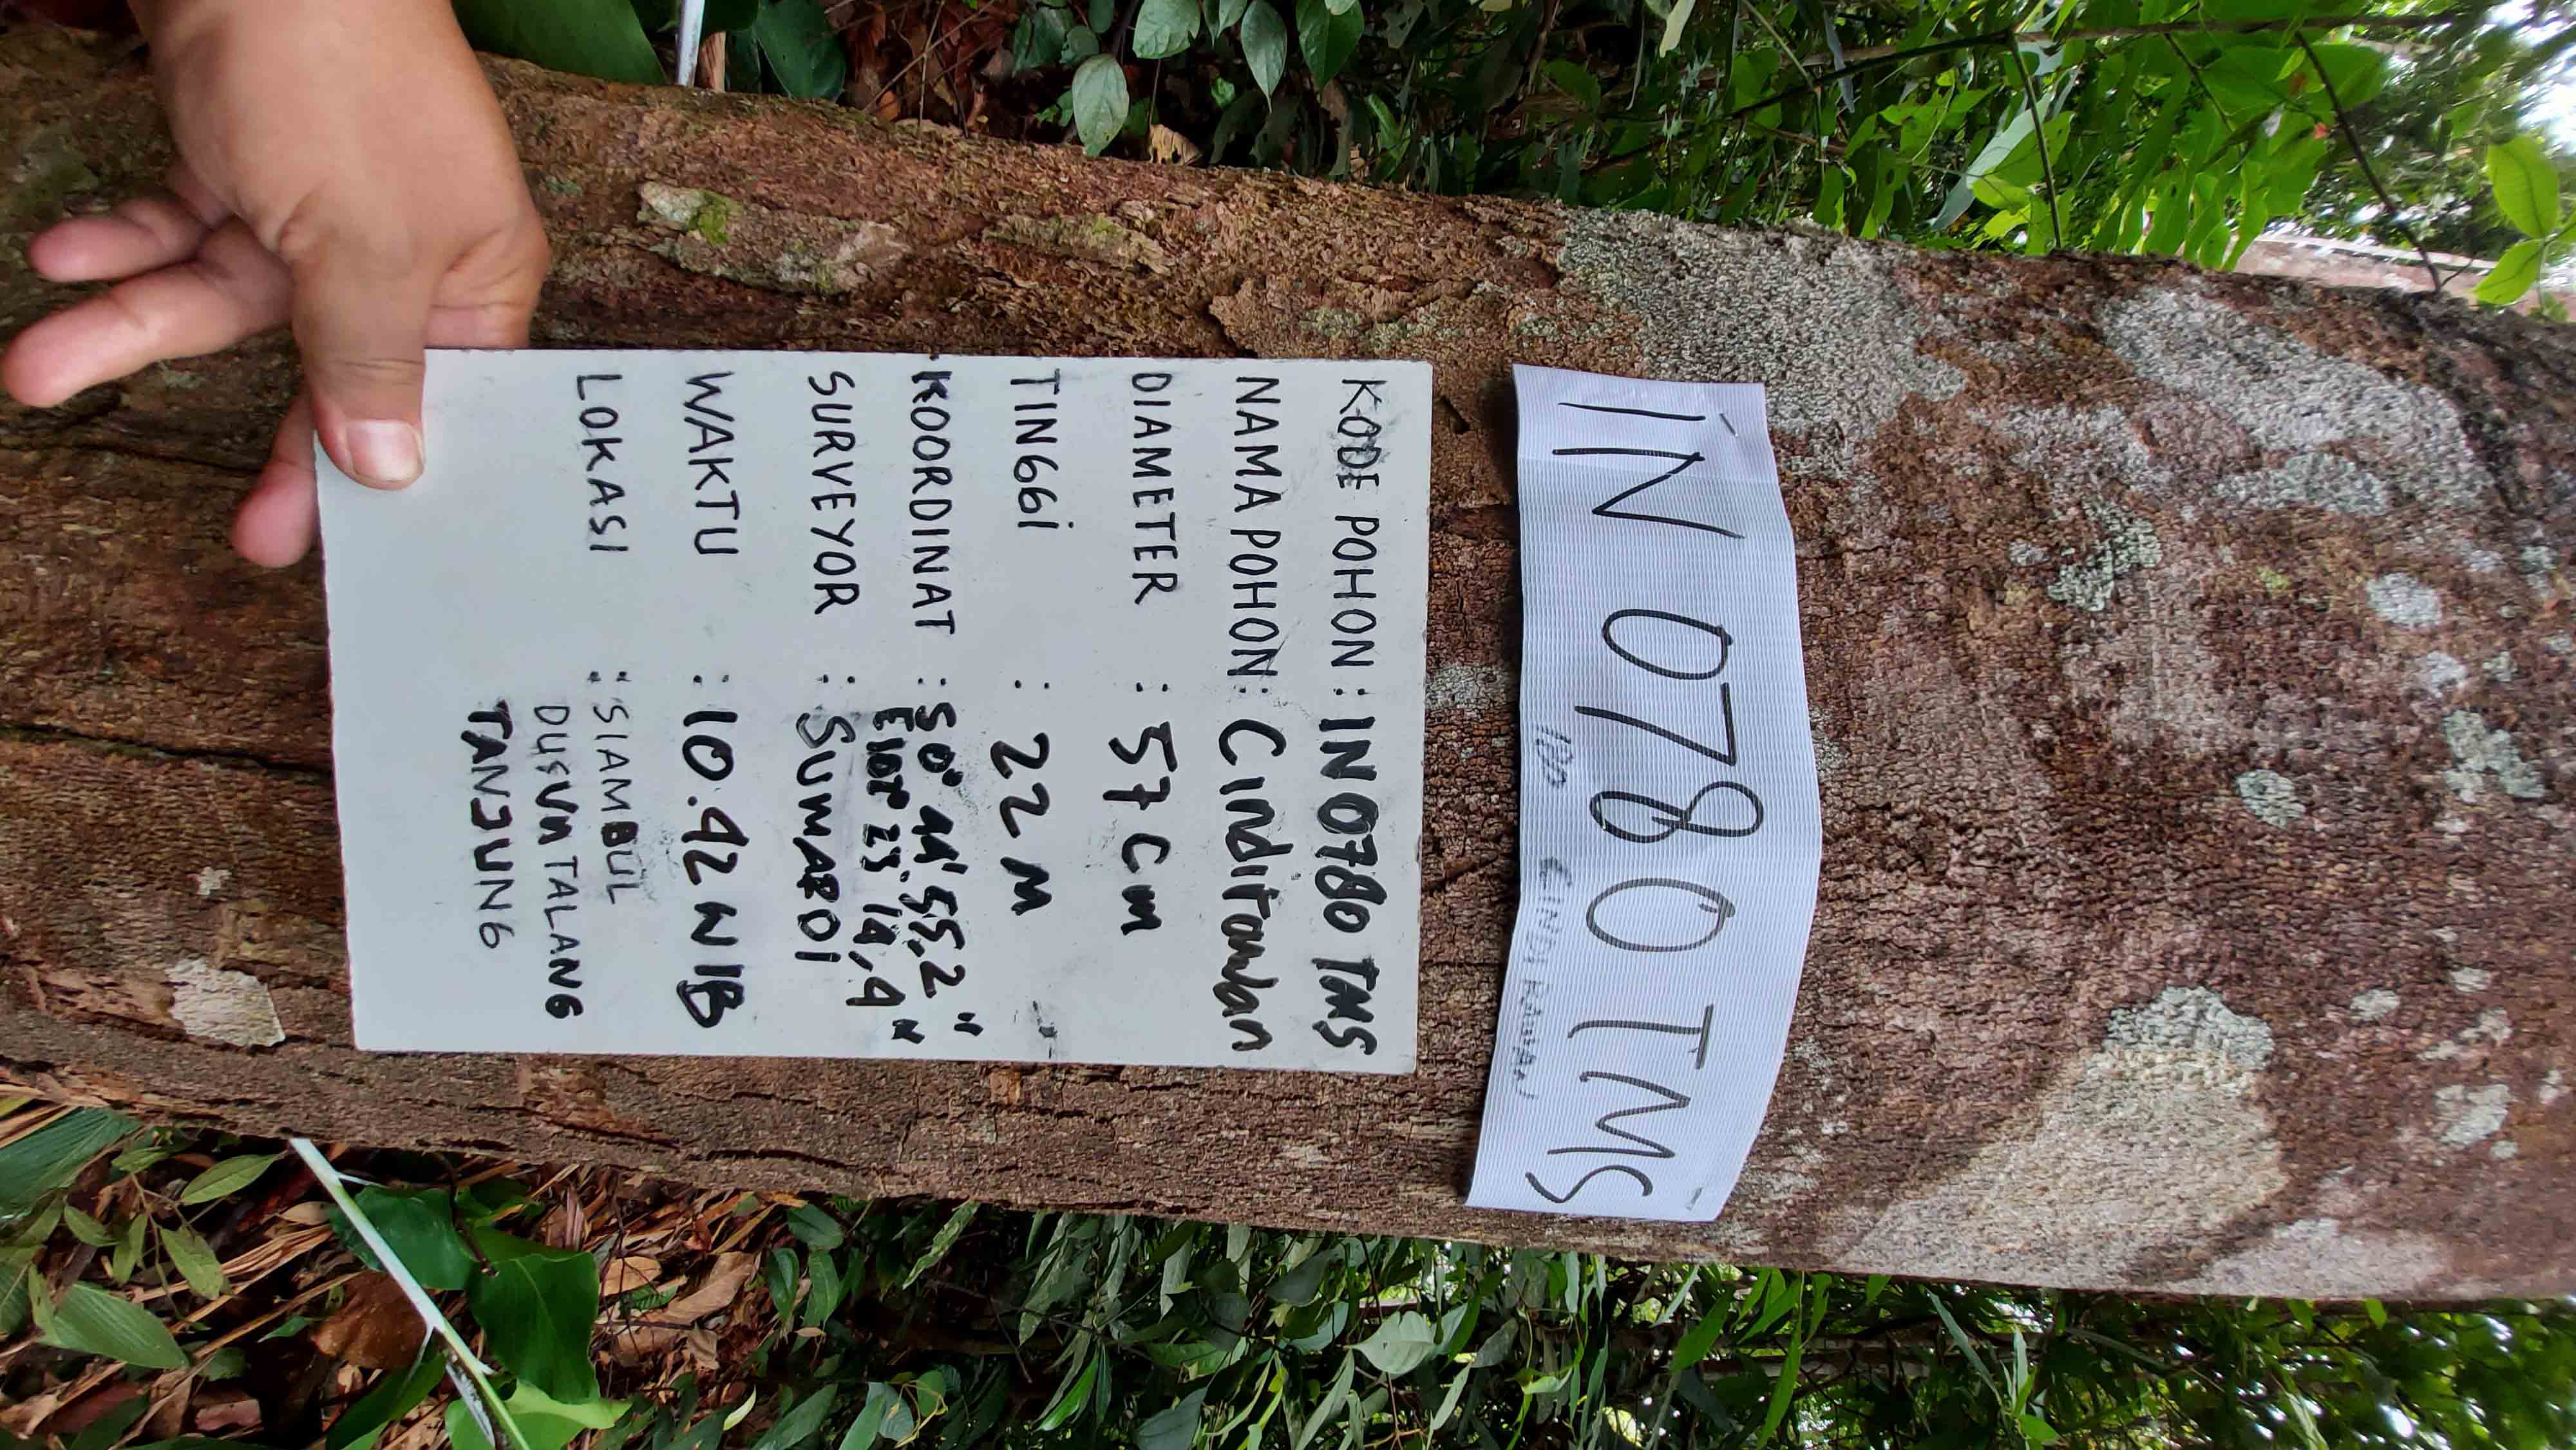 IN 0780 TMS
180 CINDIRAWAN
KODE POHON : IN 0780 TMS
NAMA POHON : Cindirawan
DIAMETER : 57 Cm
TINGGI : 22 M
KOORDINAT : S 0° 44' 55,2"
E 102° 23' 14,4"
SURVEYOR : SUMARDI
WAKTU : 10.42 WIB
LOKASI : SIAMBUL
DUSUN TALANG
TANJUNG